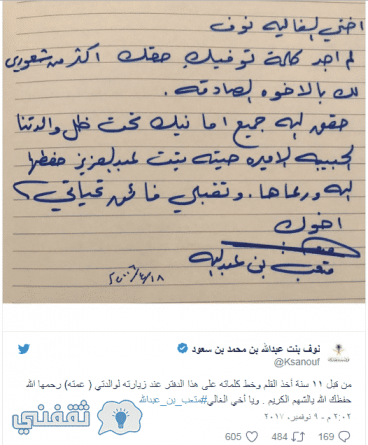 اختي الغاليه نوف
لم اجد كلمة توفيك حقك اكثر من شعوري
لك بالاخوه الصادقه .
حقق الله جميع امانيك تحت ظل والدتنا
الحبيبه الاميره حيته بنت عبدالعزيز حفظها
الله ورعاها . وتقبلي فائق تحياتي
اخوك
متعب بن عبدالله
نوف بنت عبدالله بن محمد بن سعود
@Ksanouf
من قبل ١١ سنة أخذ القلم وخط كلماته على هذا الدفتر عند زيارته لوالدتي ( عمته) رحمها الله
حفظك الله يالشهم الكريم . ويا أخي الغالي#متعب_بن_عبدالله
٢:٠٢ م - ٩ نوفمبر، ٢٠١٧
605 484 169
ثقفني